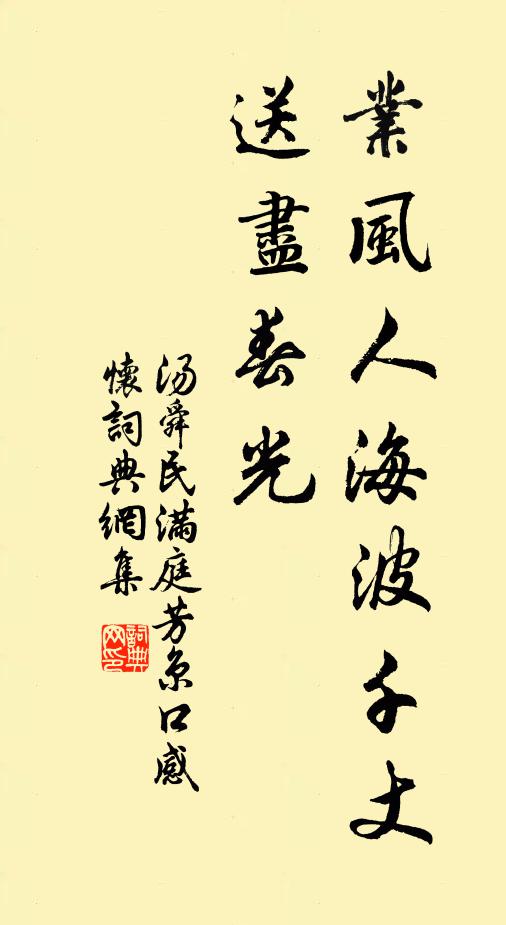 業風人海波千丈
送盡春光
汤舜民滿庭芳京口感
懷詞典網集
詞典網印